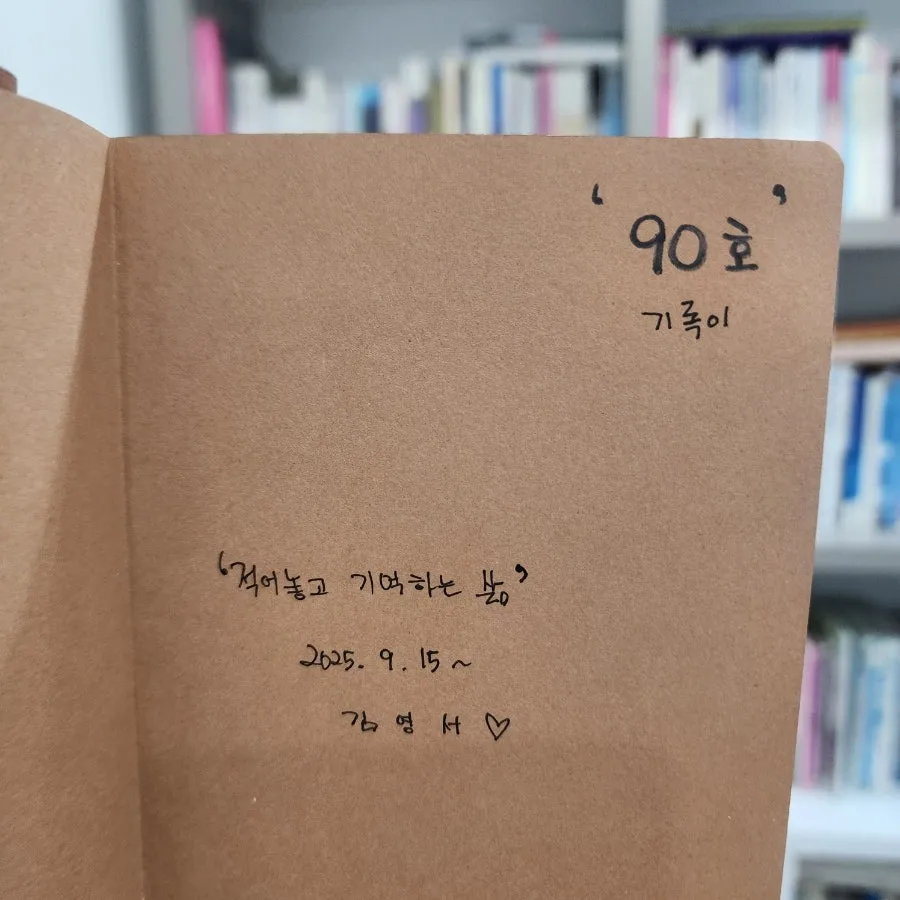 '90호'
기록이
'적어놓고 기억하는 삶'
2025. 9. 15 ~
김영서 ♡